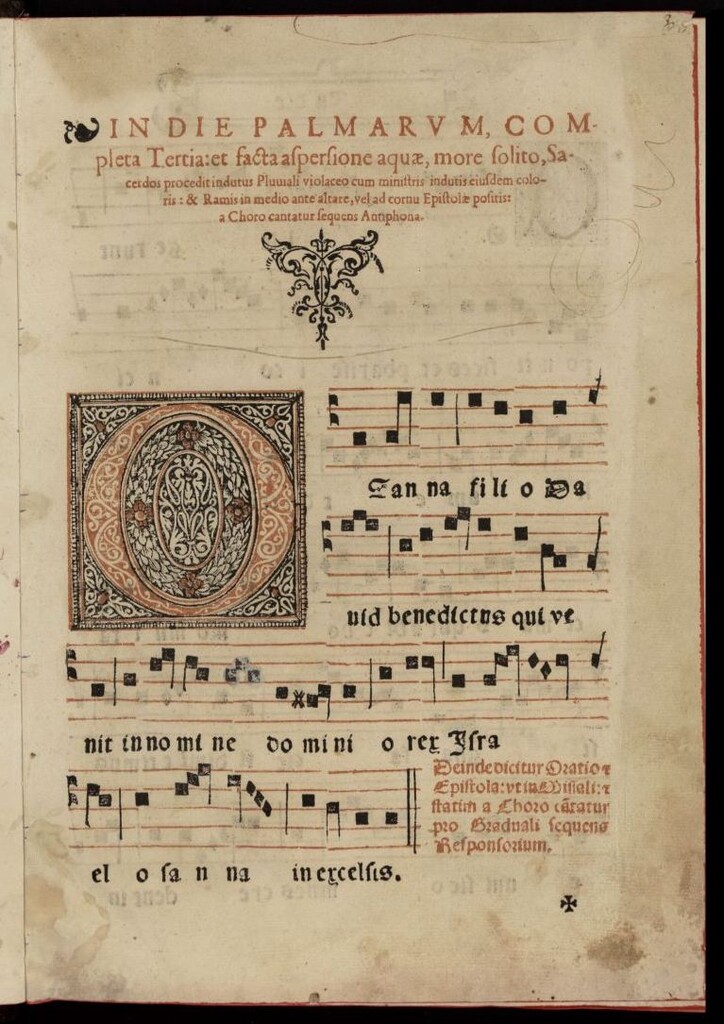 IN DIE PALMARVM, COM-
pleta Tertia: et facta aspersione aquæ, more solito, Sa-
cerdos procedit indutus Pluuiali violaceo cum ministris indutis eiusdem colo-
ris: & Ramis in medio ante altare, vel ad cornu Epistolæ positis:
a Choro cantatur sequens Antiphona.
O
San na fili o Da
uid benedictus qui ve
nit in no mi ne do mi ni o rex Isra
el o sa n na in excelsis.
Deinde dicitur Oratio ⁊
Epistola: vt in Missali: ⁊
statim a Choro cātatur
pro Graduali sequens
Responsorium.
✠